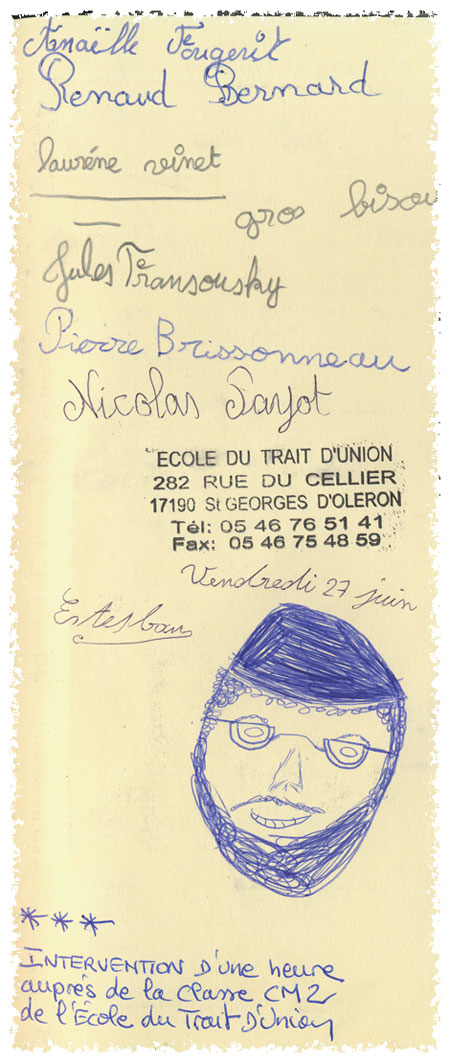 Anaëlle Fougerit
Renaud Bernard
laurène vinet
gros bisou
Jules Teransousky
Pierre Brissonneau
Nicolas Sayot
ECOLE DU TRAIT D'UNION
282 RUE DU CELLIER
17190 St GEORGES D'OLERON
Tél: 05 46 76 51 41
Fax: 05 46 75 48 59
Vendredi 27 juin
Estesban
***
INTERVENTION D'une heure
auprés de la classe CM2
de l'École du Trait D'Union